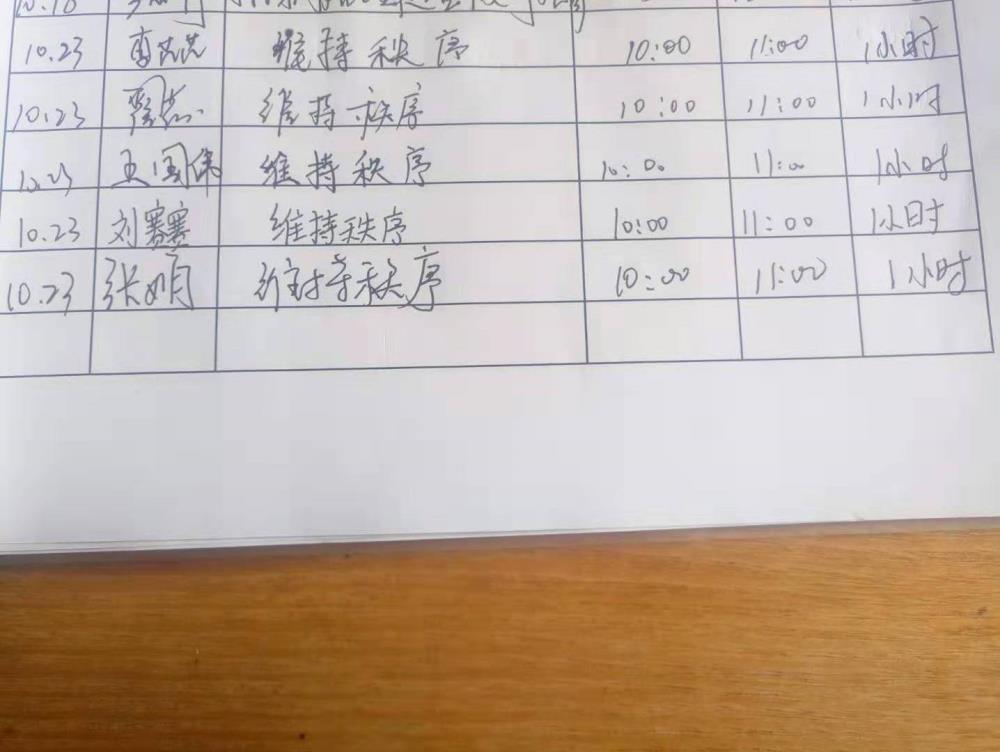 10.23 维持秩序 10:00 11:00 1小时
10.23 维持秩序 10:00 11:00 1小时
10.23 王国保 维持秩序 10:00 11:00 1小时
10.23 刘赛赛 维持秩序 10:00 11:00 1小时
10.23 张娟 维持秩序 10:00 11:00 1小时